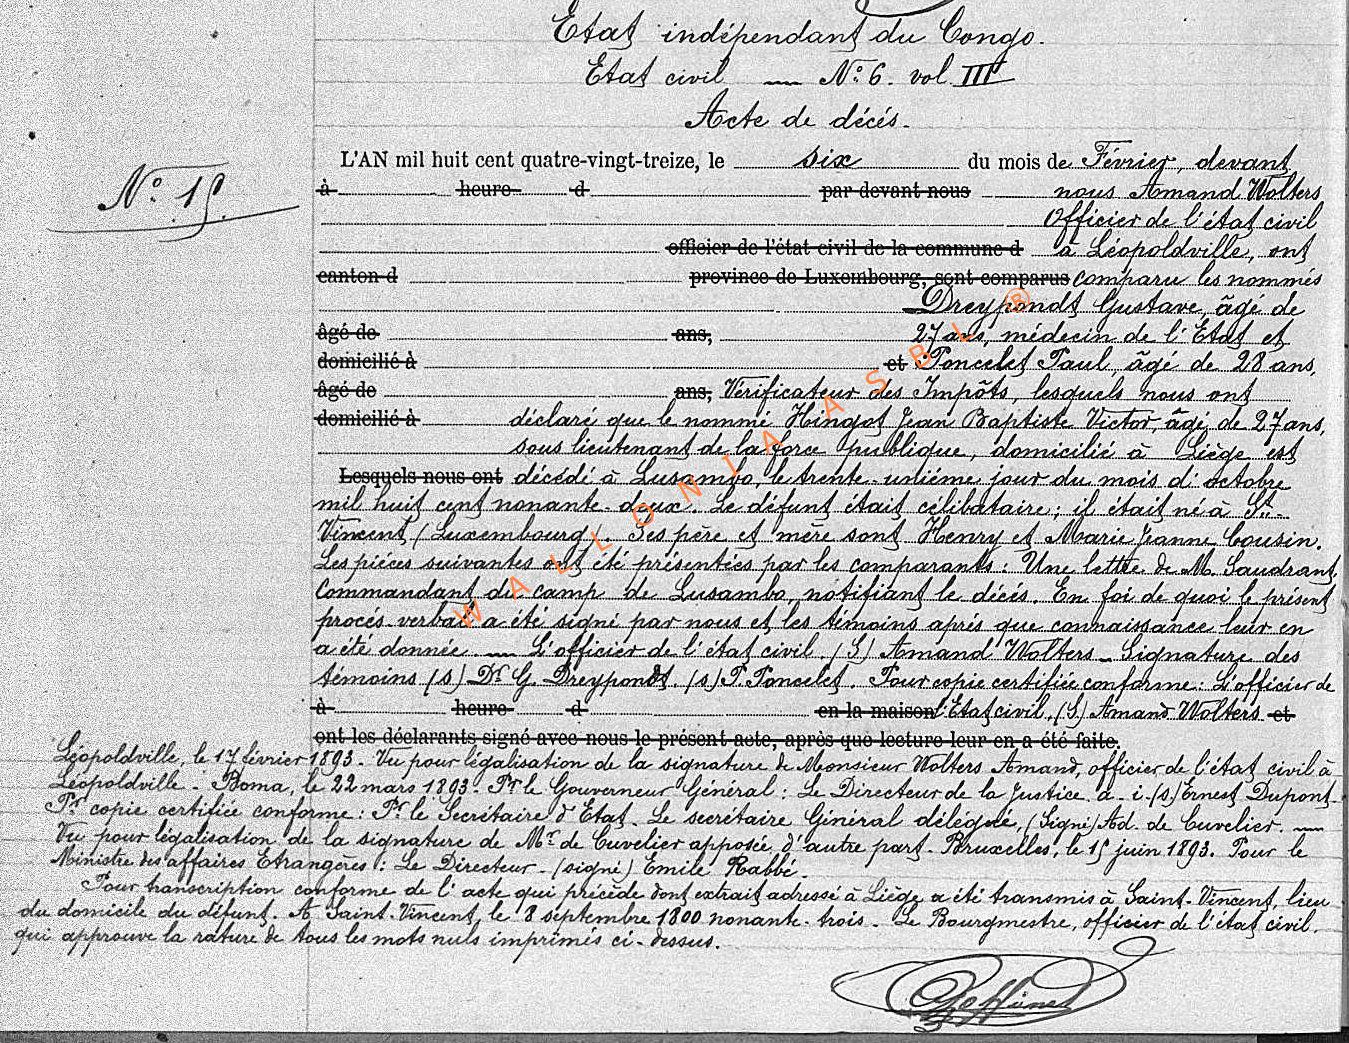 Etat indépendant du Congo.
Etat civil — N° 6. vol. III
Acte de décès.
N° 15.
L'AN mil huit cent quatre-vingt-treize, le six du mois de Février, devant
à heure d par devant nous nous Amand Wolters
Officier de l'état civil
officier de l'état civil de la commune d à Léopoldville, ont
canton d province de Luxembourg, sont comparus comparu les nommés
Dreypondt Gustave, âgé de
âgé de ans, 27 ans, médecin de l'Etat et
domicilié à et Poncelet Paul, âgé de 28 ans,
âgé de ans, Vérificateur des Impôts, lesquels nous ont
domicilié à déclaré que le nommé Hingot Jean Baptiste Victor, âgé de 27 ans,
sous lieutenant de la force publique, domicilié à Liège est
Lesquels nous ont décédé à Lusambo, le trente-unième jour du mois d'octobre
mil huit cent nonante-deux. Le défunt était célibataire; il était né à St-
Vincent (Luxembourg). Ses père et mère sont Henry et Marie Jeanne Cousin.
Les pièces suivantes ont été présentées par les comparants: Une lettre de M. Gaudrant,
Commandant du camp de Lusambo, notifiant le décès. En foi de quoi le présent
procès-verbal a été signé par nous et les témoins après que connaissance leur en
a été donnée. — L'officier de l'état civil (S) Amand Wolters - Signature des
témoins (s) Dr G. Dreypondt. (s) P. Poncelet. Pour copie certifiée conforme: L'officier de
à heure d en la maison l'Etat civil, (S) Amand Wolters et
ont les déclarants signé avec nous le présent acte, après que lecture leur en a été faite.
Léopoldville, le 17 février 1893. Vu pour légalisation de la signature de Monsieur Wolters Amand, officier de l'état civil à
Léopoldville - Boma, le 22 mars 1893. Pr le Gouverneur Général: Le Directeur de la Justice a. i. (s) Ernest Dupont -
Pr copie certifiée conforme: Pr le Secrétaire d'Etat. Le secrétaire Général délégué, (Signé) Ad. de Cuvelier. —
Vu pour légalisation de la signature de Mr de Cuvelier apposée d'autre part. Bruxelles, le 15 juin 1893. Pour le
Ministre des affaires Etrangères: Le Directeur - (signé) Emile Rabbé.
Pour transcription conforme de l'acte qui précède dont extrait adressé à Liège a été transmis à Saint-Vincent, lieu
du domicile du défunt. A Saint-Vincent, le 8 septembre 1800 nonante-trois. Le Bourgmestre, officier de l'état civil.
qui approuve la rature de tous les mots nuls imprimés ci-dessus.
Goffinet
WALLONIA ASBL ®